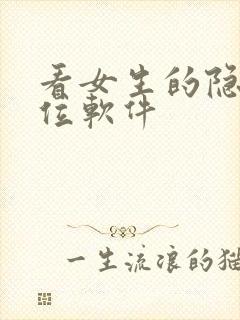 看女生的隐
位軟件
一生流浪的猫